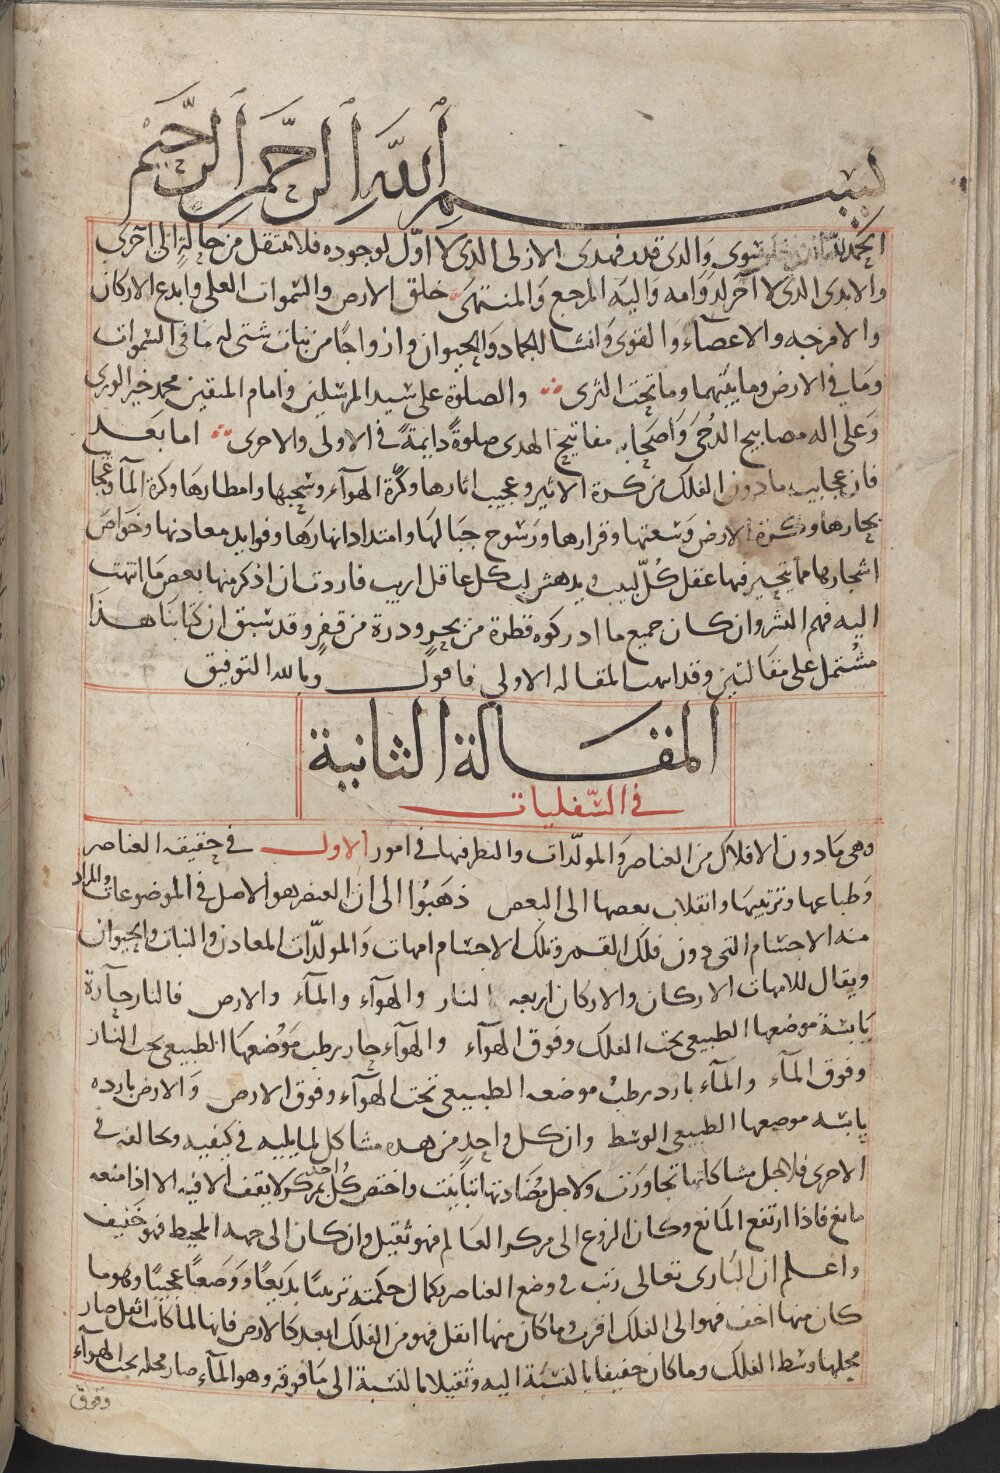 بسم الله الرحمن الرحيم
الحمد لله الذى خلق فسوى والذى قدر فهدى الازلى الذى لا اول لوجوده فلا ينتقل من حالة الى اخرى
والابدى الذى لا آخر لدوامه واليه المرجع والمنتهى خلق الارض والسموات العلى وابدع الاركان
والامزجه والاعضاء والقوى وانشا الجماد والحيوان وازواجا من نبات شتى له ما فى السموات
وما فى الارض وما بينهما وما تحت الثرى والصلوة على سيد المرسلين وامام المتقين محمد خير الورى
وعلى اله مصابيح الدجى واصحابه مفاتيح الهدى صلوة دايمة فى الاولى والاخرى اما بعد
فان عجايب ما دون الفلك من كرة الاثير وعجيب اثارها وكرة الهوآء وسحبها وامطارها وكرة المآ وعجا
بحارها وكرة الارض وسعتها وقرارها ورسوخ جبالها وامتداد انهارها وفوايد معادنها وخواص
اشجارها مما يتحير فيها عقل كل لبيب ويدهش لب كل عاقل اريب فاردت ان اذكر منها بعض ما انتهت
اليه فهم البشر وان كان جميع ما ادركوه قطرة من بحر وذرة من قفر وقد سبق ان كتابنا هذا
مشتمل على مقالتين وقد المقاله الاولى فاقول وبالله التوفيق
المقالة الثانية
فى السفليات
وهى ما دون الافلاك من العناصر والمولدات والنظر فيها فى امور الاول فى حقيقه العناصر
وطباعها وترتيبها وانقلاب بعضها الى البعض ذهبوا الى ان العنصر هو الاصل فى الموضوعات والمراد
منه الاجسام التى دون فلك القمر وتلك الاجسام امهات والمولدات المعادن والنبات والحيوان
ويقال للامهات الاركان والاركان اربعه النار والهوآء والمآء والارض فالنار حآرة
يابسة موضعها الطبيعى تحت الفلك وفوق الهوآء والهوآء حار رطب موضعها الطبيعى تحت النار
وفوق المآء والمآء بارد رطب موضعه الطبيعى تحت الهوآء وفوق الارض والارض بارده
يابسه موضعها الطبيعى الوسط وان كل واحد من هذه مشاكل لما يليه فى كيفيه ومخالفه فى
الاخرى فلاجل مشاكلتها تجاورت ولاجل مضادتها تباينت واختص كل واحد بمركز لا يقف الا فيه الا اذا منعه
مانع فاذا ارتفع المانع وكان النزوع الى مركز العالم فهو ثقيل وان كان الى جهه المحيط فهو خفيف
واعلم ان البارى تعالى رتب فى وضع العناصر بكمال حكمته ترتيبا بديعا ووضعا عجيبا وهو ما
كان منها اخف فهو الى الفلك اقرب وما كان منها اثقل فهو من الفلك ابعد كالارض فانها لما كانت اثقل صار
محلها وسط الفلك وما كان خفيفا بالنسبة اليه وثقيلا بالنسبة الى ما فوقه وهو المآء صار محله تحت الهوآء
وفوق